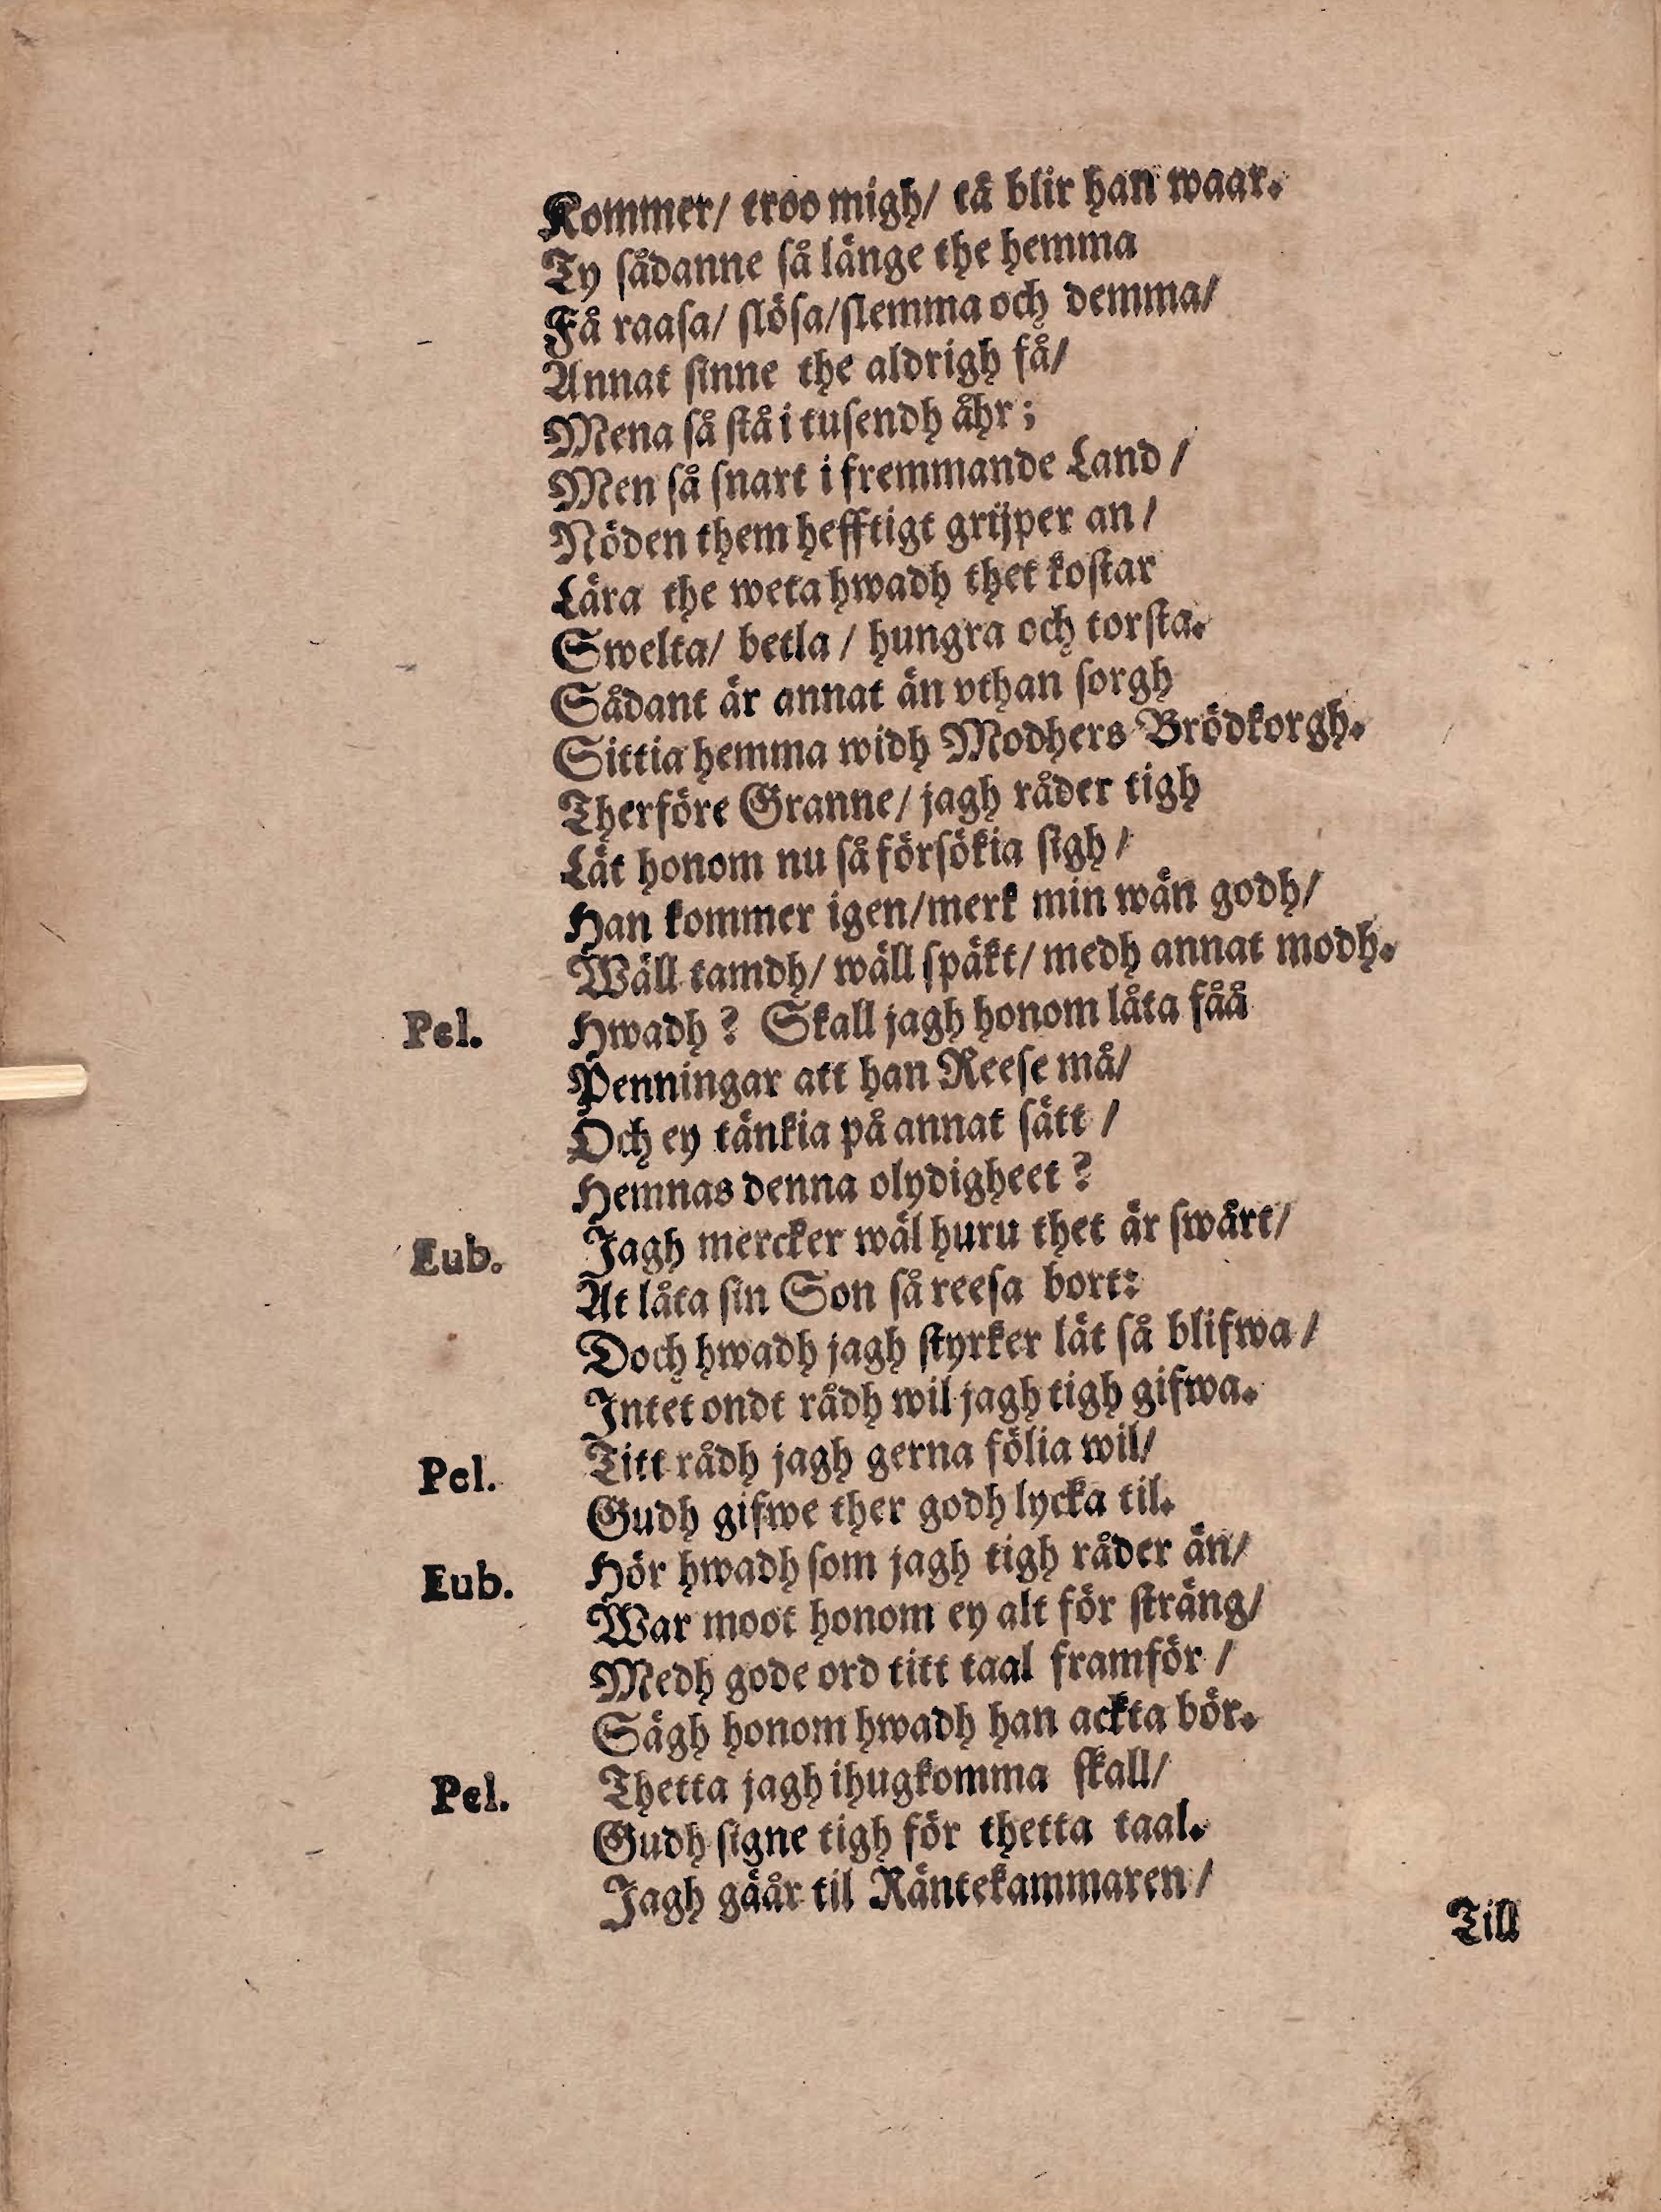 Kommer/ troo migh/ tå blir han waar.
Ty sådanne så länge the hemma
Få raasa/ slösa/ slemma och demma/
Annat sinne the aldrigh få/
Mena så stå i tusendh åhr;
Men så snart i fremmande Land /
Nöden them hefftigt grijper an /
Lära the weta hwadh thet kostar
Swelta/ betla / hungra och torsta.
Sådant är annat än vthan sorgh
Sittia hemma widh Modhers Brödkorgh.
Therföre Granne/ jagh råder tigh
Lät honom nu så försökia sigh /
Han kommer igen/ merk min wän godh/
Wäll tamdh/ wäll späkt/ medh annat modh.
Pel. Hwadh ? Skall jagh honom låta fåå
Penningar att han Reese må/
Och ey tänkia på annat sätt /
Hemnas denna olydigheet ?
Eub. Jagh mercker wäl huru thet är swårt/
At låta sin Son så reesa bort:
Doch hwadh jagh styrker lät så blifwa /
Intet ondt rådh wil jagh tigh gifwa.
Pel. Titt rådh jagh gerna fölia wil/
Gudh gifwe ther godh lycka til.
Eub. Hör hwadh som jagh tigh råder än/
War moot honom ey alt för sträng/
Medh gode ord titt taal framför /
Sägh honom hwadh han ackta bör.
Pel. Thetta jagh ihugkomma skall/
Gudh signe tigh för thetta taal.
Jagh gåår til Räntekammaren /
Till